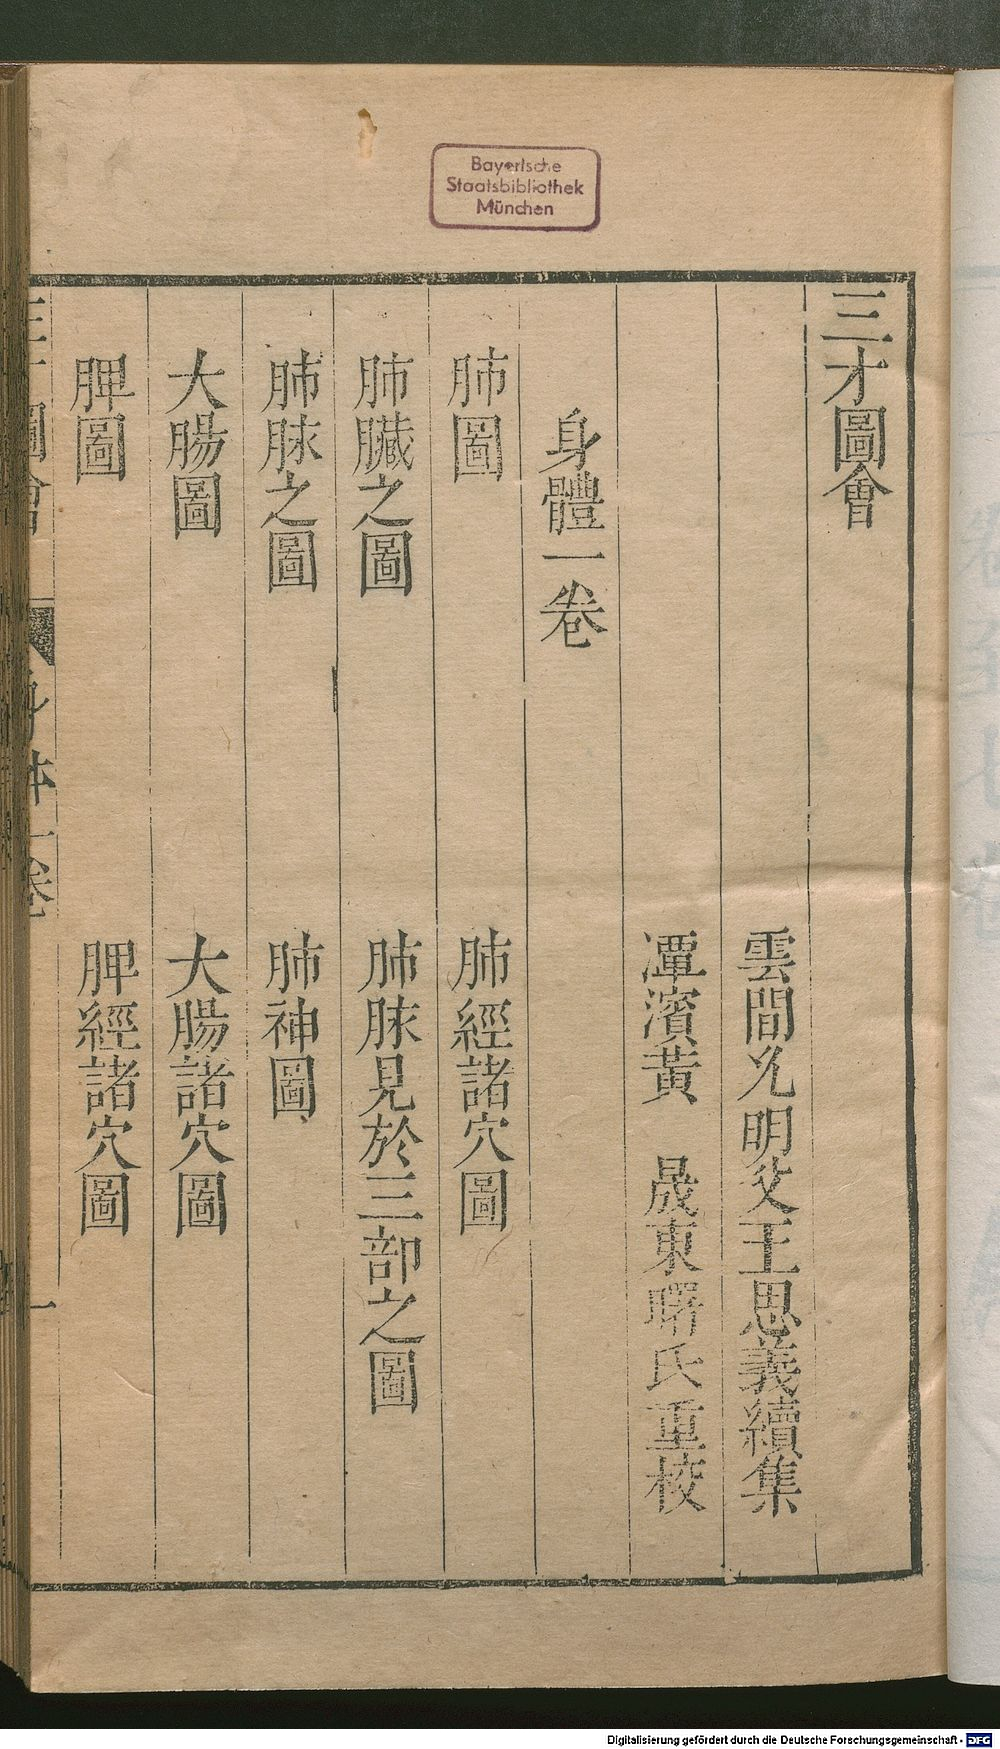 Bayerische
Staatsbibliothek
München
三才圖會
雲間允明父王思義續集
潭濱黃 晟東曙氏重校
身體一卷
肺圖 肺經諸穴圖
肺臟之圖 肺脉見於三部之圖
肺脉之圖 肺神圖
大腸圖 大腸諸穴圖
脾圖 脾經諸穴圖
三才圖會 身体一卷 一
Digitalisierung gefördert durch die Deutsche Forschungsgemeinschaft - DFG